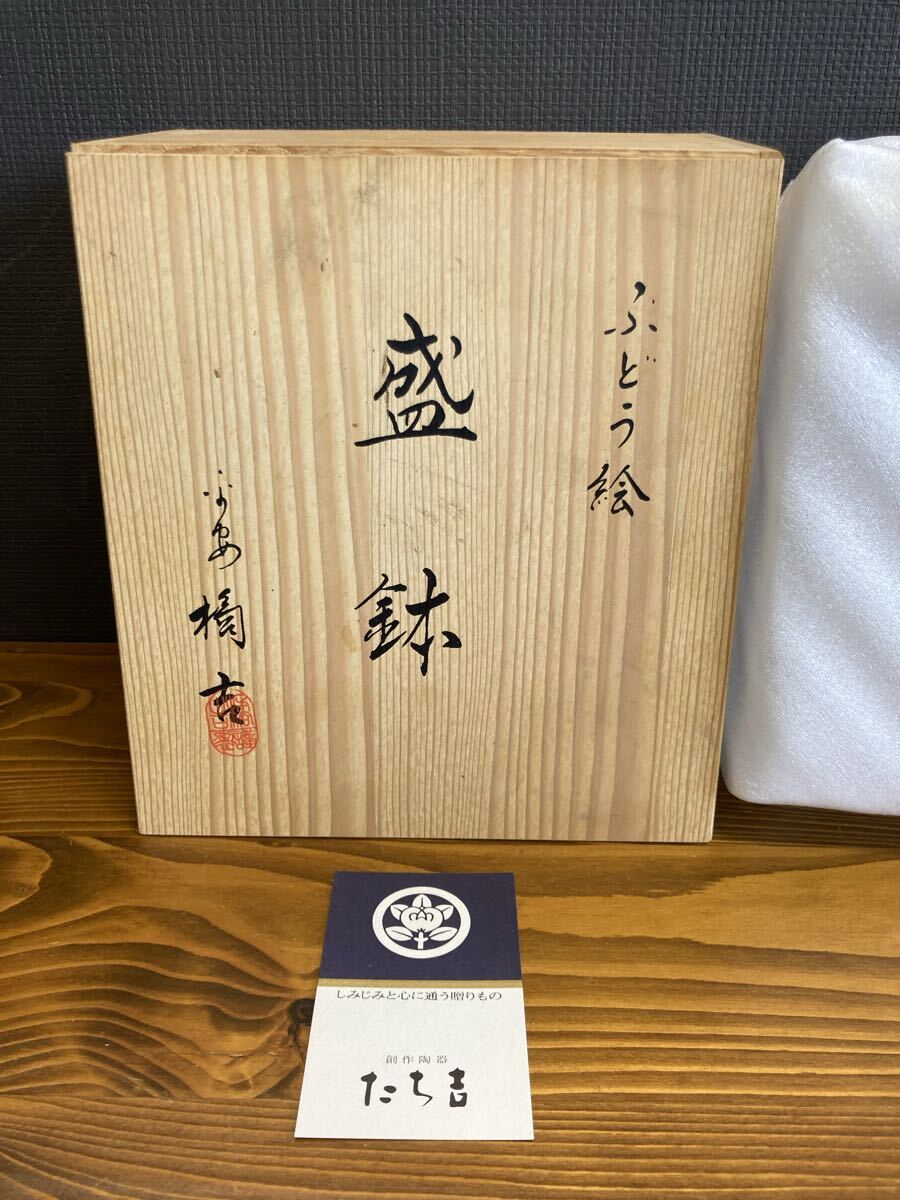 ぶどう絵
盛鉢
平安 橘吉
しみじみと心に通う贈りもの
創作陶器
たち吉